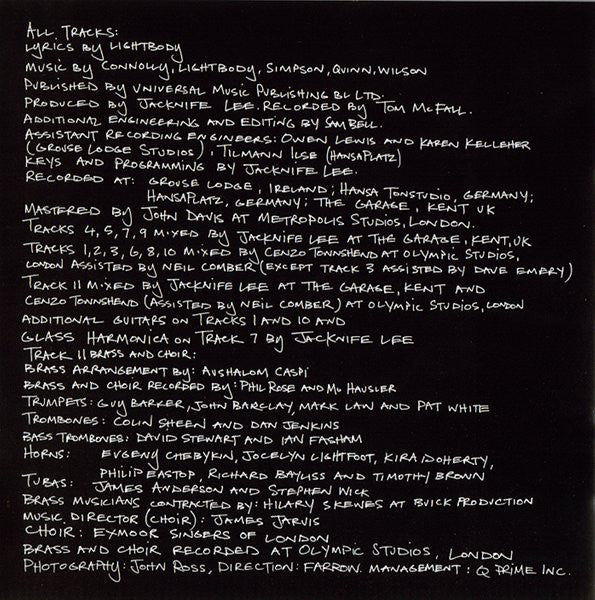 ALL TRACKS:
LYRICS BY LIGHTBODY
MUSIC BY CONNOLLY, LIGHTBODY, SIMPSON, QUINN, WILSON
PUBLISHED BY UNIVERSAL MUSIC PUBLISHING BL LTD.
PRODUCED BY JACKNIFE LEE. RECORDED BY TOM McFALL.
ADDITIONAL ENGINEERING AND EDITING BY SAM BELL.
ASSISTANT RECORDING ENGINEERS: OWEN LEWIS AND KAREN KELLEHER
(GROUSE LODGE STUDIOS), TILMANN ILSE (HANSAPLATZ)
KEYS AND PROGRAMMING BY JACKNIFE LEE.
RECORDED AT: GROUSE LODGE, IRELAND; HANSA TONSTUDIO, GERMANY;
HANSAPLATZ, GERMANY; THE GARAGE, KENT UK
MASTERED BY JOHN DAVIS AT METROPOLIS STUDIOS, LONDON.
TRACKS 4, 5, 7, 9 MIXED BY JACKNIFE LEE AT THE GARAGE, KENT, UK
TRACKS 1, 2, 3, 6, 8, 10 MIXED BY CENZO TOWNSHEND AT OLYMPIC STUDIOS,
LONDON ASSISTED BY NEIL COMBER (EXCEPT TRACK 3 ASSISTED BY DAVE EMERY)
TRACK 11 MIXED BY JACKNIFE LEE AT THE GARAGE, KENT AND
CENZO TOWNSHEND (ASSISTED BY NEIL COMBER) AT OLYMPIC STUDIOS, LONDON
ADDITIONAL GUITARS ON TRACKS 1 AND 10 AND
GLASS HARMONICA ON TRACK 7 BY JACKNIFE LEE
TRACK 11 BRASS AND CHOIR:
BRASS ARRANGEMENT BY: AVSHALOM CASPI
BRASS AND CHOIR RECORDED BY: PHIL ROSE AND Mo HAUSLER
TRUMPETS: GUY BARKER, JOHN BARCLAY, MARK LAW AND PAT WHITE
TROMBONES: COLIN SHEEN AND DAN JENKINS
BASS TROMBONES: DAVID STEWART AND IAN FASHAM
HORNS: EVGENY CHEBYKIN, JOCELYN LIGHTFOOT, KIRA DOHERTY,
PHILIP EASTOP, RICHARD BAYLISS AND TIMOTHY BROWN
TUBAS: JAMES ANDERSON AND STEPHEN WICK
BRASS MUSICIANS CONTRACTED BY: HILARY SKEWES AT BUICK PRODUCTION
MUSIC DIRECTOR (CHOIR): JAMES JARVIS
CHOIR: EXMOOR SINGERS OF LONDON
BRASS AND CHOIR RECORDED AT OLYMPIC STUDIOS, LONDON
PHOTOGRAPHY: JOHN ROSS, DIRECTION: FARROW. MANAGEMENT: Q PRIME INC.